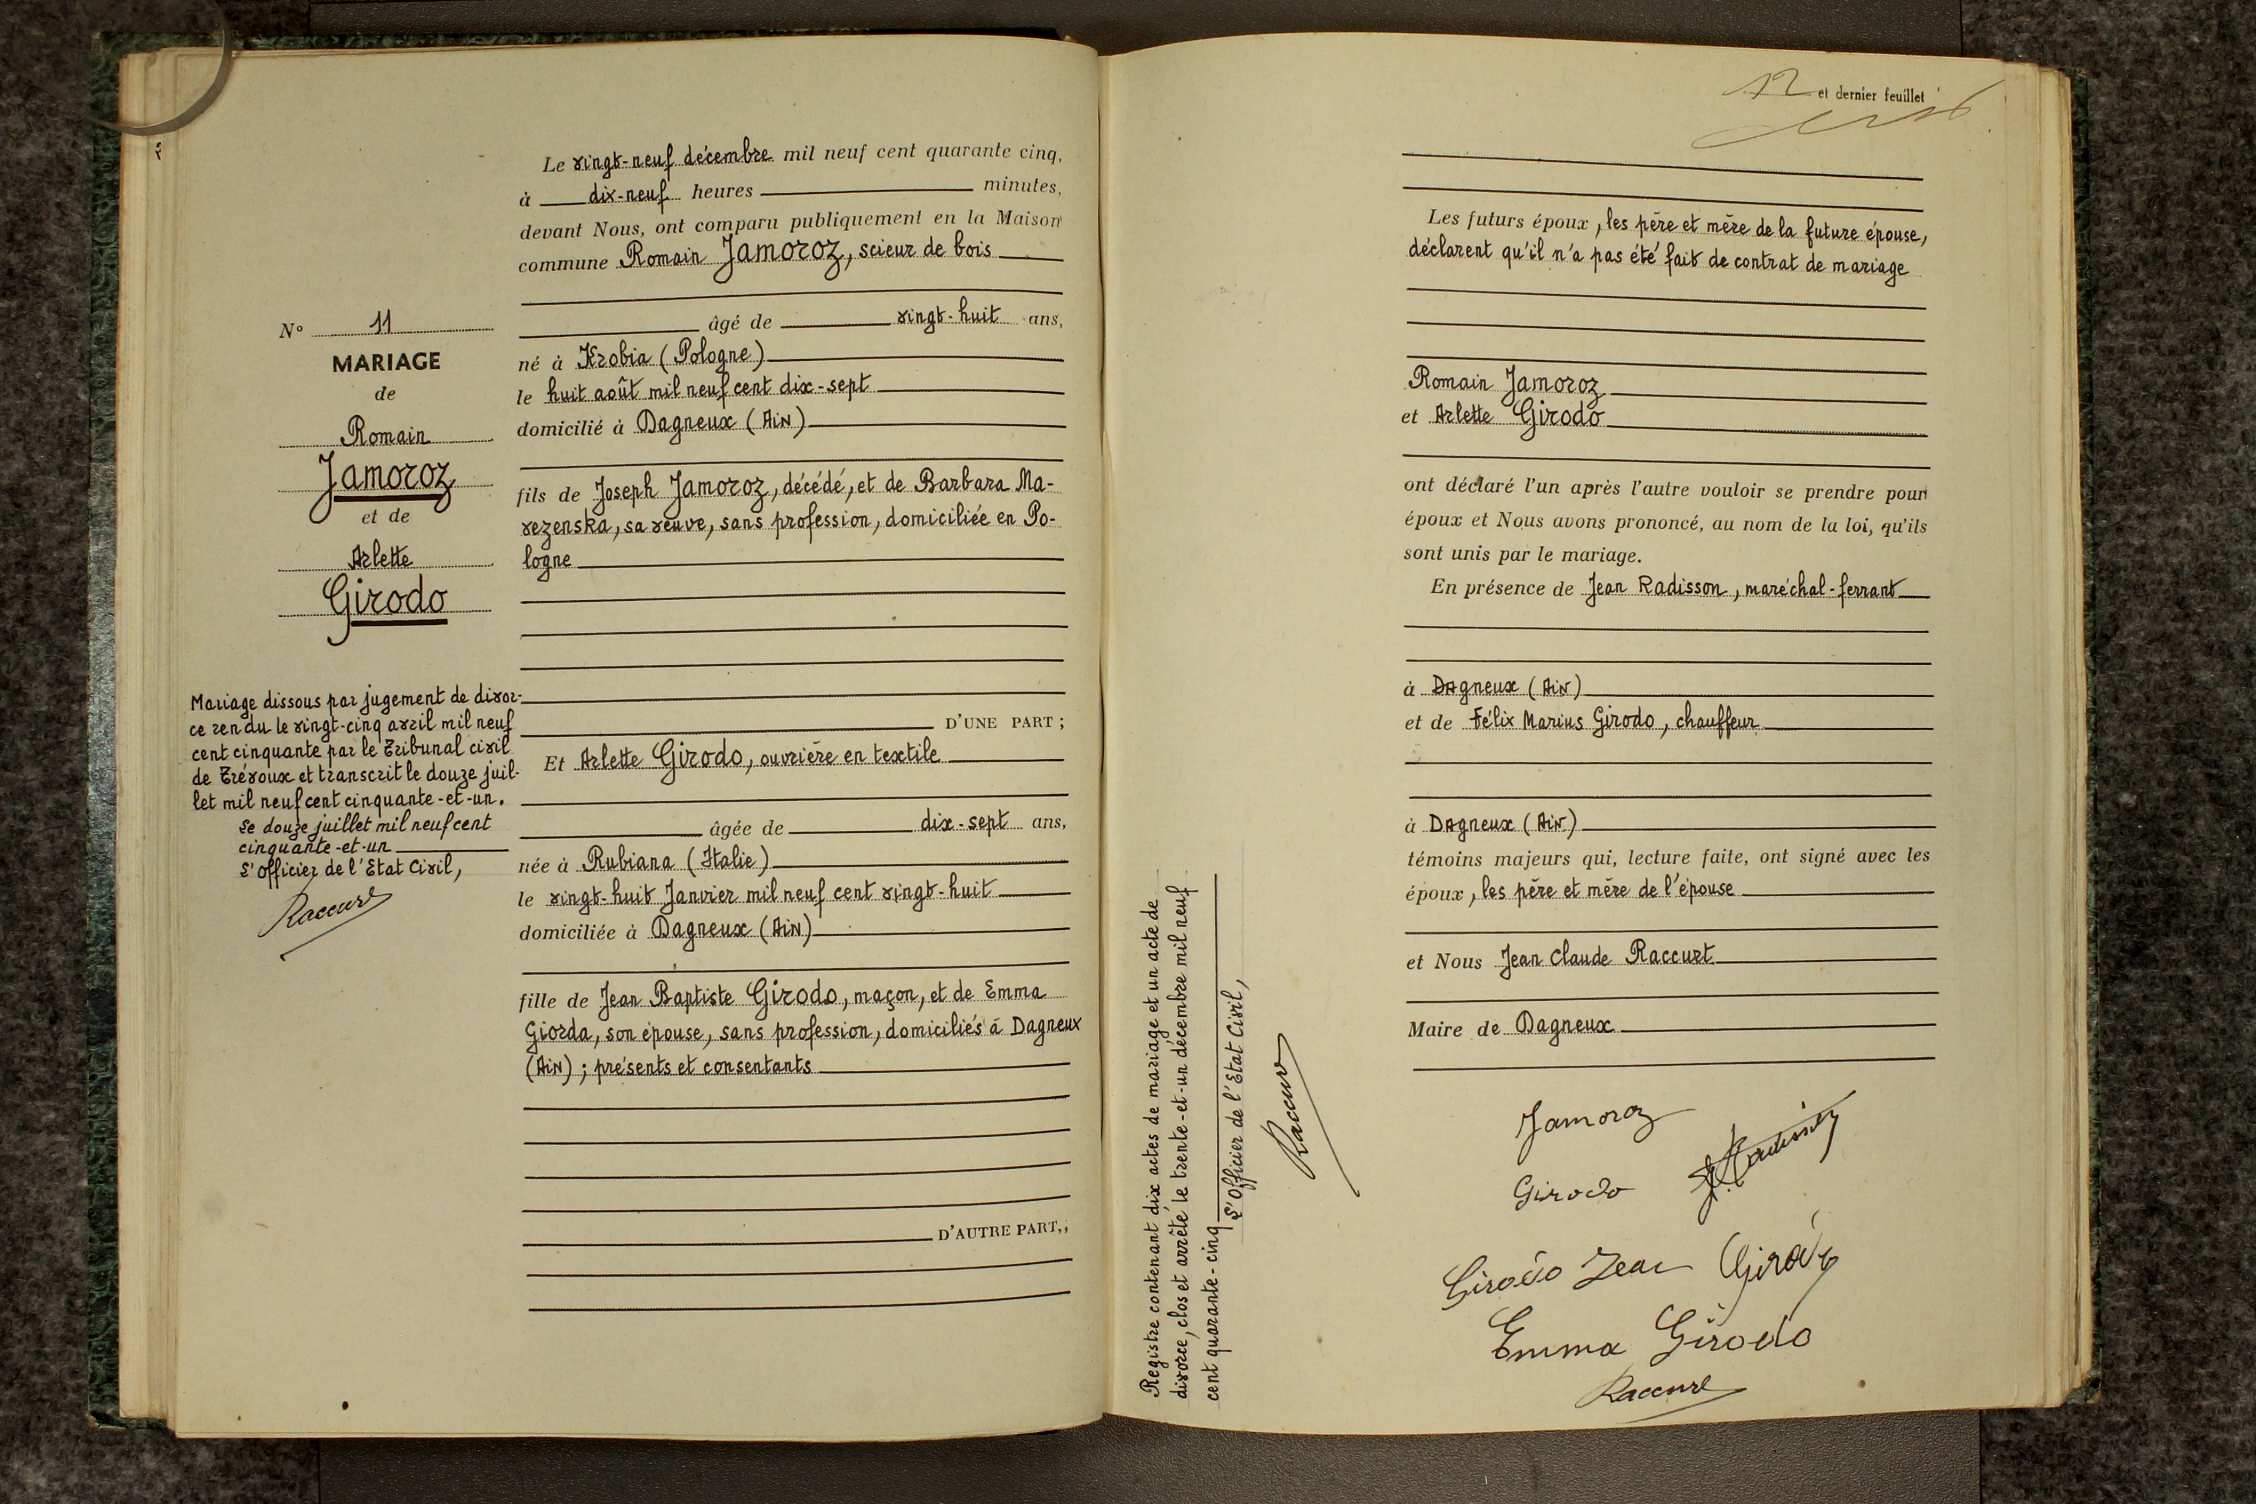 Le vingt-neuf décembre mil neuf cent quarante cinq,
à dix-neuf heures minutes,
devant Nous, ont comparu publiquement en la Maison
commune Romain Jamoroz, scieur de bois
âgé de vingt-huit ans,
né à Krobia (Pologne)
le huit août mil neuf cent dix-sept
domicilié à Dagneux (Ain)
fils de Joseph Jamoroz, décédé, et de Barbara Ma-
rezenska, sa veuve, sans profession, domiciliée en Po-
logne
D'UNE PART ;
Et Arlette Girodo, ouvrière en textile
âgée de dix-sept ans,
née à Rubiana (Italie)
le vingt-huit Janvier mil neuf cent vingt-huit
domiciliée à Dagneux (Ain)
fille de Jean Baptiste Girodo, maçon, et de Emma
Giorda, son épouse, sans profession, domiciliés à Dagneux
(Ain) ; présents et consentants
D'AUTRE PART,;
N° 11
MARIAGE
de
Romain
Jamoroz
et de
Arlette
Girodo
Mariage dissous par jugement de divor-
ce rendu le vingt-cinq avril mil neuf
cent cinquante par le Tribunal civil
de Trévoux et transcrit le douze juil-
let mil neuf cent cinquante-et-un.
Le douze juillet mil neuf cent
cinquante-et-un
L'Officier de l'Etat Civil,
Raccurt
12 et dernier feuillet
Les futurs époux, les père et mère de la future épouse,
déclarent qu'il n'a pas été fait de contrat de mariage
Romain Jamoroz
et Arlette Girodo
ont déclaré l'un après l'autre vouloir se prendre pour
époux et Nous avons prononcé, au nom de la loi, qu'ils
sont unis par le mariage.
En présence de Jean Radisson, maréchal-ferrant
à Dagneux (Ain)
et de Félix Marius Girodo, chauffeur
à Dagneux (Ain)
témoins majeurs qui, lecture faite, ont signé avec les
époux, les père et mère de l'épouse
et Nous Jean Claude Raccurt
Maire de Dagneux
Jamoroz
Girodo J. Radisson
Girodo Jean Girodo
Emma Girodo
Raccurt
Registre contenant dix actes de mariage et un acte de
divorce, clos et arrêté le trente-et-un décembre mil neuf
cent quarante-cinq
L'Officier de l'Etat Civil,
Raccurt